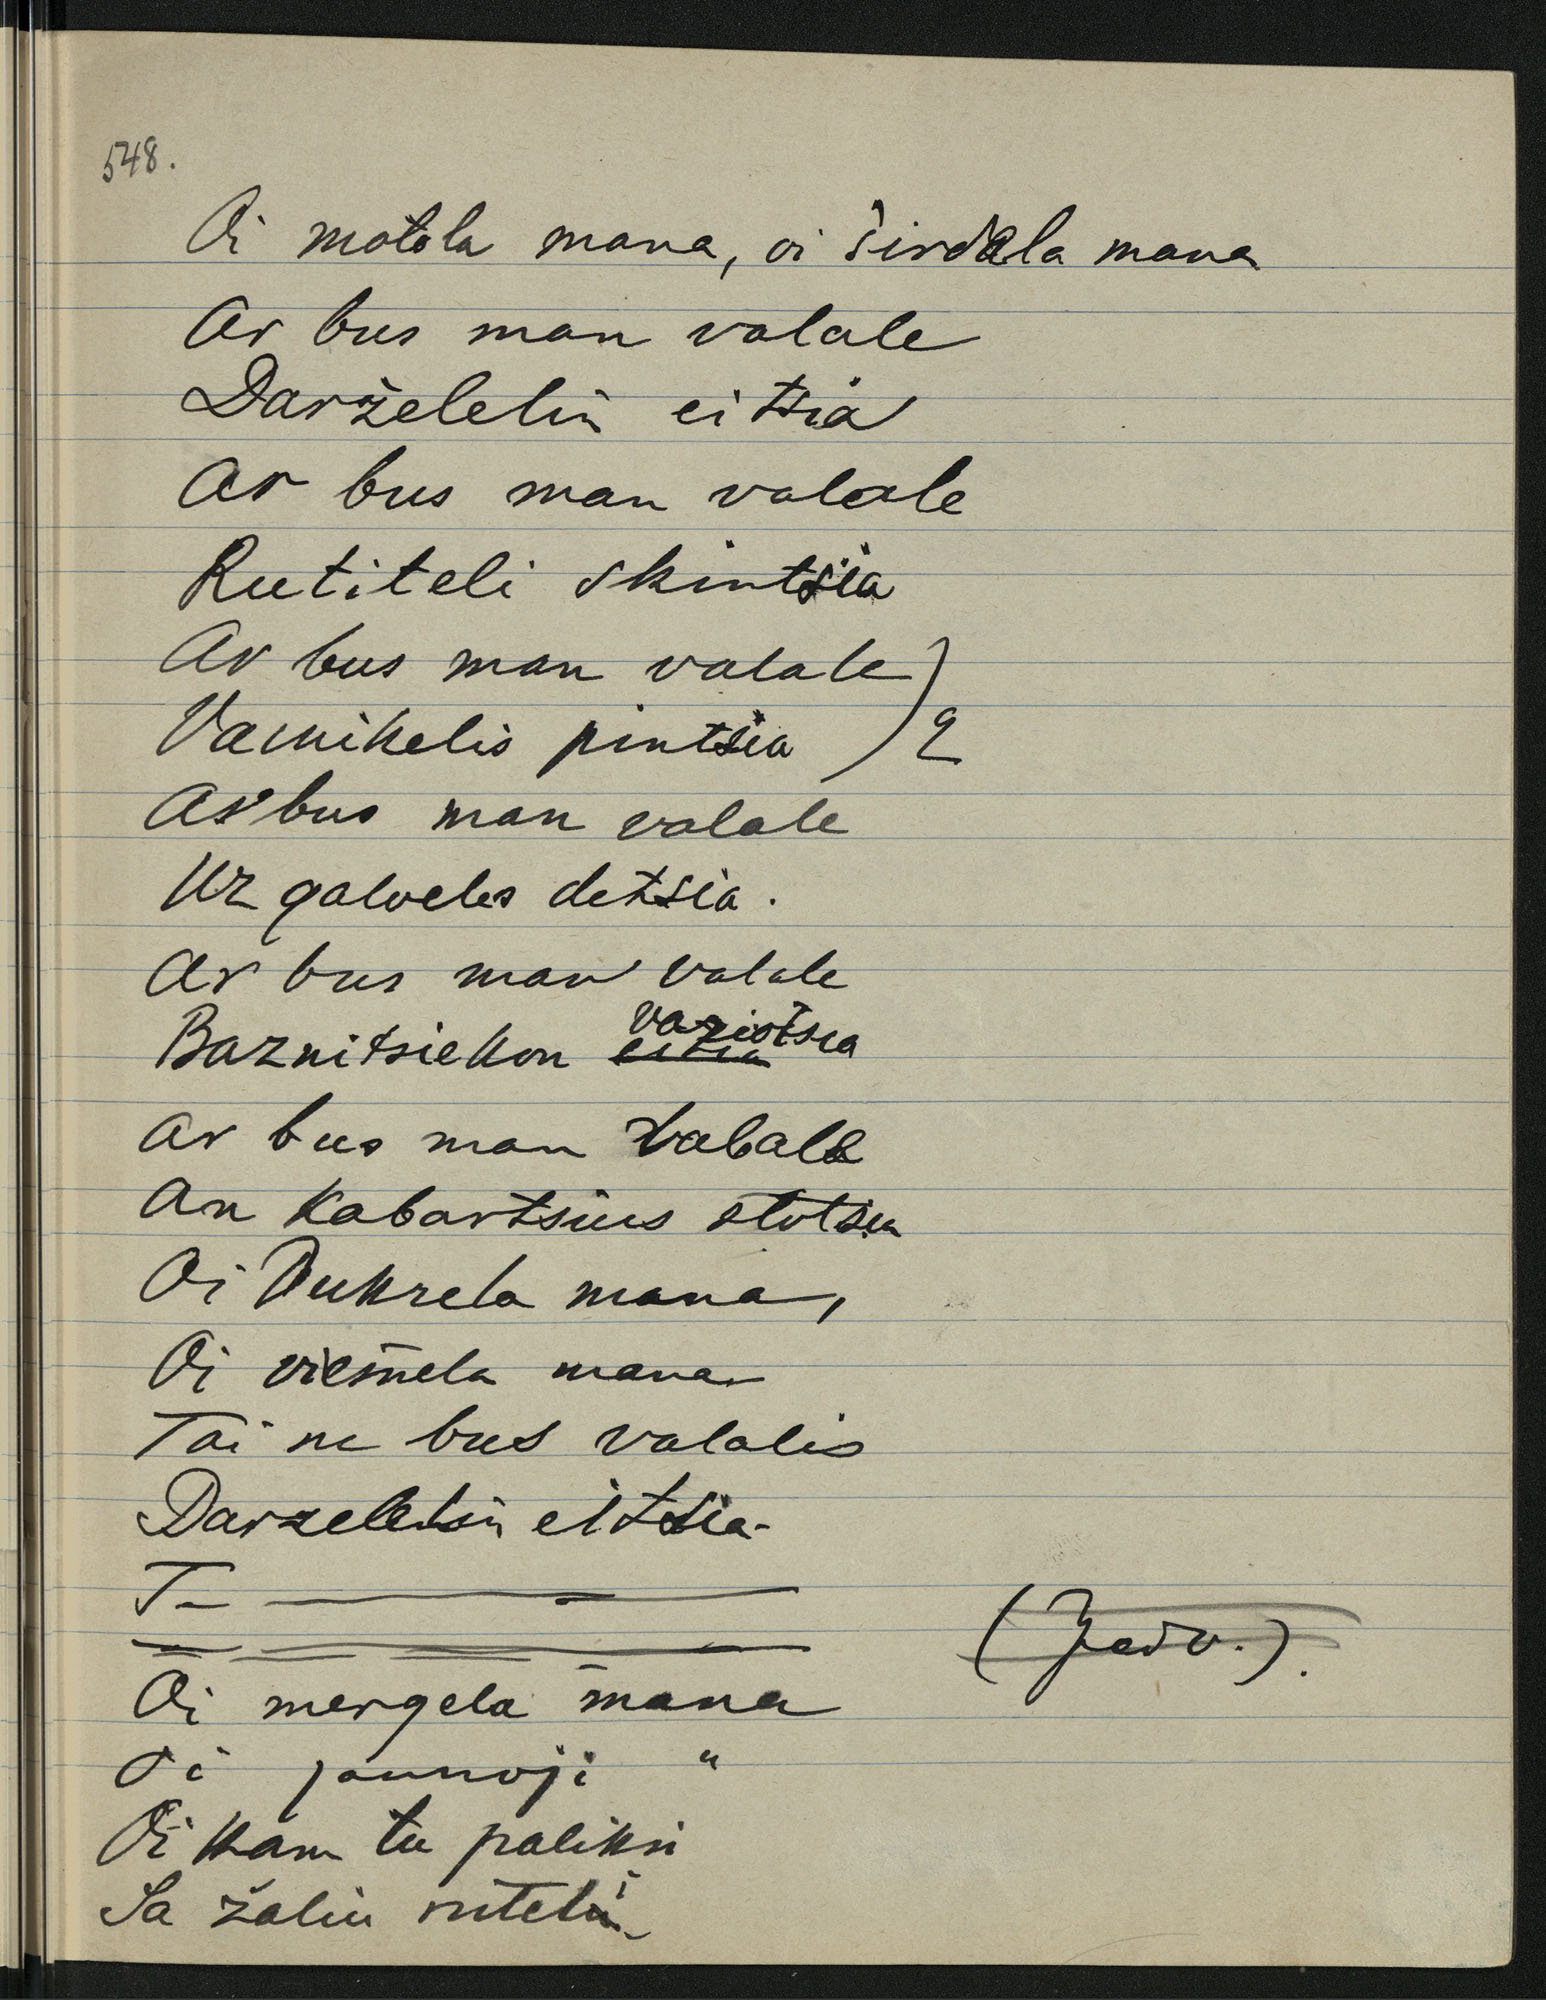 548.
Oi motola mana, oi širdala mana
Ar bus man valale
Darželelin eitsia
Ar bus man valale
Rutiteli skintsia
Ar bus man valale
Vainikelis pintsia ) 2
Ar bus man valale
Uz galveles detsia.
Ar bus man valale
Baznitsiekon vaziotsia
Ar bus man valale
An Kabartsius stotsia
Oi Dukrela mana,
Oi viešnela mana
Tai ne bus valalis
Darzelelsin eitsia
T—
Oi mergela mana
Oi jaunoji "
Oi kam tu paliksi
Sa žaliu ruteli